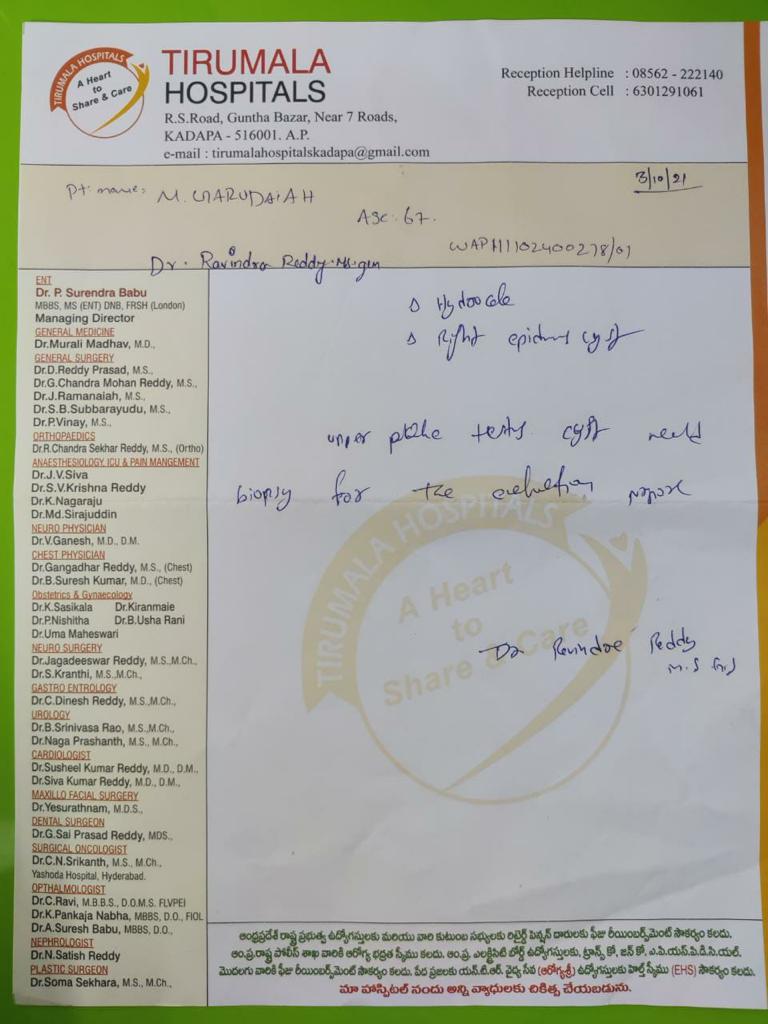 TIRUMALA HOSPITALS
A Heart
to
Share & Care
TIRUMALA
HOSPITALS
R.S.Road, Guntha Bazar, Near 7 Roads,
KADAPA - 516001. A.P.
e-mail : tirumalahospitalskadapa@gmail.com
Reception Helpline : 08562 - 222140
Reception Cell : 6301291061
3/10/21
Pt. name: M. GARUDAIAH
67.
WAP111102400278/01
Dr. Ravindra Reddy. Ms. gen
ENT
Dr. P. Surendra Babu
MBBS, MS (ENT) DNB, FRSH (London)
Managing Director
GENERAL MEDICINE
Dr.Murali Madhav, M.D.,
GENERAL SURGERY
Dr.D.Reddy Prasad, M.S.,
Dr.G.Chandra Mohan Reddy, M.S.,
Dr.J.Ramanaiah, M.S.,
Dr.S.B.Subbarayudu, M.S.,
Dr.P.Vinay, M.S.,
ORTHOPAEDICS
Dr.R.Chandra Sekhar Reddy, M.S., (Ortho)
ANAESTHESIOLOGY, ICU & PAIN MANGEMENT
Dr.J.V.Siva
Dr.S.V.Krishna Reddy
Dr.K.Nagaraju
Dr.Md.Sirajuddin
NEURO PHYSICIAN
Dr.V.Ganesh, M.D., D.M.
CHEST PHYSICIAN
Dr.Gangadhar Reddy, M.S., (Chest)
Dr.B.Suresh Kumar, M.D., (Chest)
Obstetrics & Gynaecology
Dr.K.Sasikala Dr.Kiranmaie
Dr.P.Nishitha Dr.B.Usha Rani
Dr.Uma Maheswari
NEURO SURGERY
Dr.Jagadeeswar Reddy, M.S.,M.Ch.,
Dr.S.Kranthi, M.S.,M.Ch.,
GASTRO ENTROLOGY
Dr.C.Dinesh Reddy, M.S., M.Ch.,
UROLOGY
Dr.B.Srinivasa Rao, M.S.,M.Ch.,
Dr.Naga Prashanth, M.S., M.Ch.,
CARDIOLOGIST
Dr.Susheel Kumar Reddy, M.D., D.M.,
Dr.Siva Kumar Reddy, M.D., D.M.,
MAXILLO FACIAL SURGERY
Dr.Yesurathnam, M.D.S.,
DENTAL SURGEON
Dr.G.Sai Prasad Reddy, MDS.,
SURGICAL ONCOLOGIST
Dr.C.N.Srikanth, M.S., M.Ch.,
Yashoda Hospital, Hyderabad.
OPTHALMOLOGIST
Dr.C.Ravi, M.B.B.S., D.O.M.S. FLVPEI
Dr.K.Pankaja Nabha, MBBS, D.O., FIOL
Dr.A.Suresh Babu, MBBS, D.O.,
NEPHROLOGIST
Dr.N.Satish Reddy
PLASTIC SURGEON
Dr.Soma Sekhara, M.S., M.Ch.,
Hydrocele
Right cyst
tests cyst need
biopsy for the
TIRUMALA HOSPITALS
A Heart
to
Share & Care
Dr Ravindra Reddy
M.S
ఆంధ్రప్రదేశ్ రాష్ట్ర ప్రభుత్వ ఉద్యోగస్తులకు మరియు వారి కుటుంబ సభ్యులకు రిటైర్డ్ పెన్షన్ దారులకు ఫీజు రీయింబర్స్‌మెంట్ సౌకర్యం కలదు.
ఆం.ప్ర.రాష్ట్ర పోలీస్ శాఖ వారికి ఆరోగ్య భద్రత స్కీము కలదు. ఆం.ప్ర. ఎలక్ట్రిసిటి బోర్డ్ ఉద్యోగస్తులకు, ట్రాన్స్ కో, జన్ కో, ఎ.పి.యస్.పి.డి.సి.యల్.
మొదలుగు వారికి ఫీజు రీయింబర్స్‌మెంట్ సౌకర్యం కలదు. పేద ప్రజలకు యన్.టి.ఆర్. వైద్య సేవ (ఆరోగ్యశ్రీ) ఉద్యోగస్తులకు హెల్త్ స్కీము (EHS) సౌకర్యం కలదు.
మా హాస్పిటల్ నందు అన్ని వ్యాధులకు చికిత్స చేయబడును.